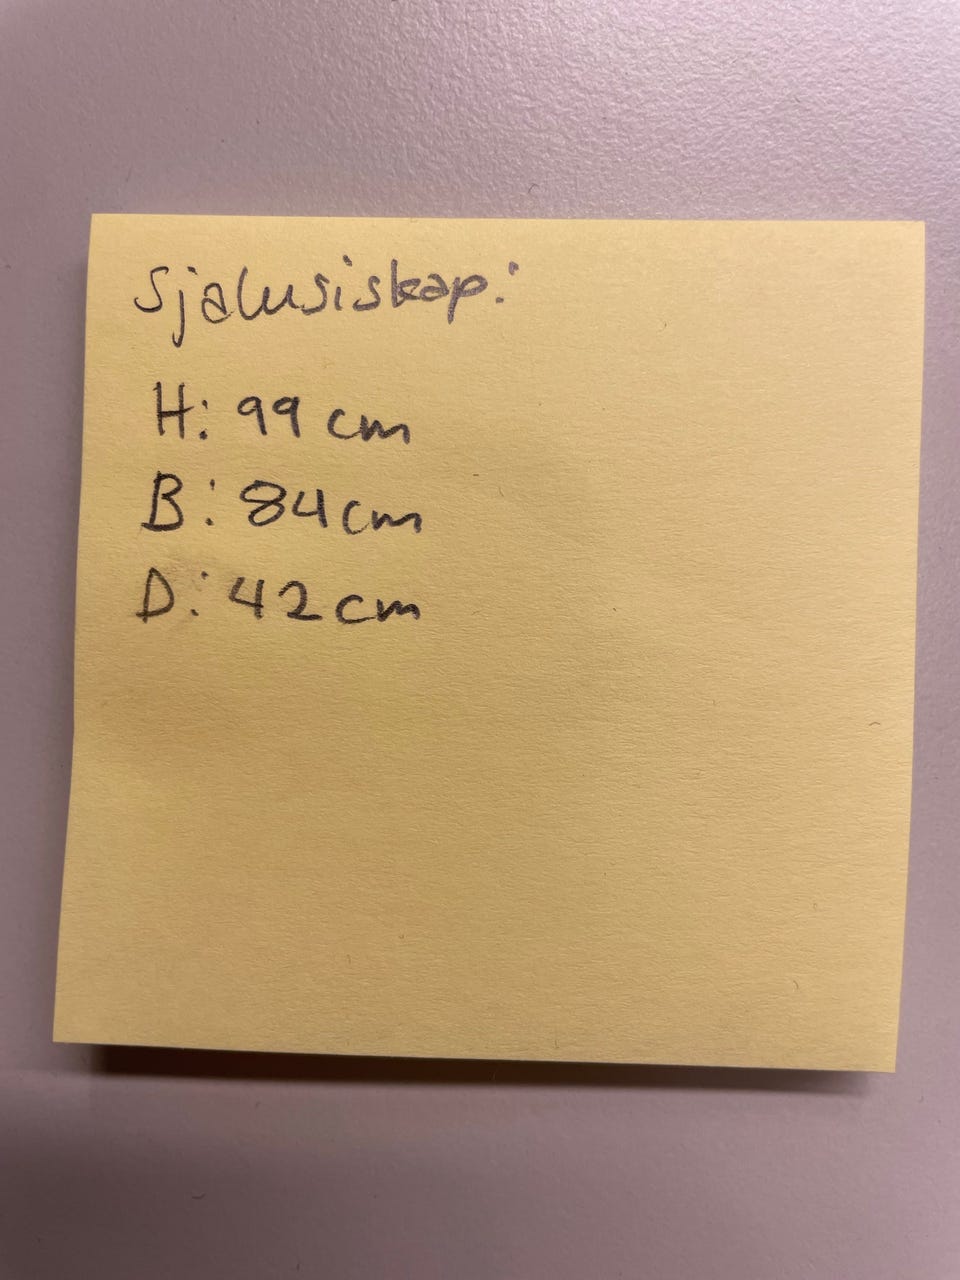 Sjalusiskap:
H: 99 cm
B: 84 cm
D: 42 cm